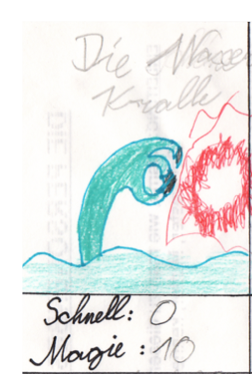 Die Wasser
Kralle
Schnell: 0
Magie: 10